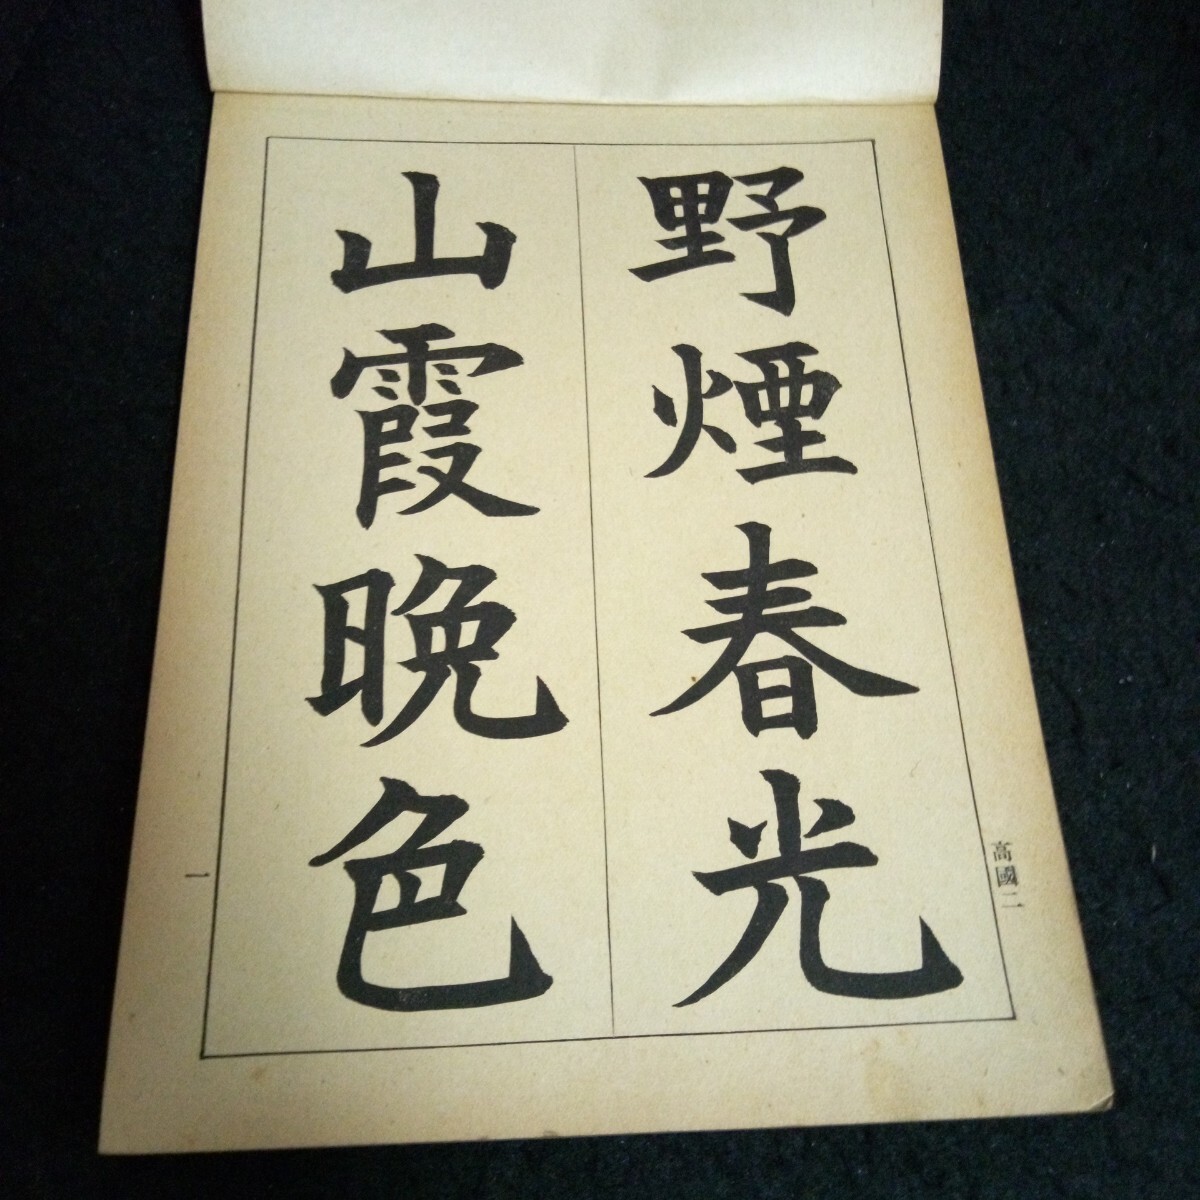 野煙春光
山霞晩色
高國二
一